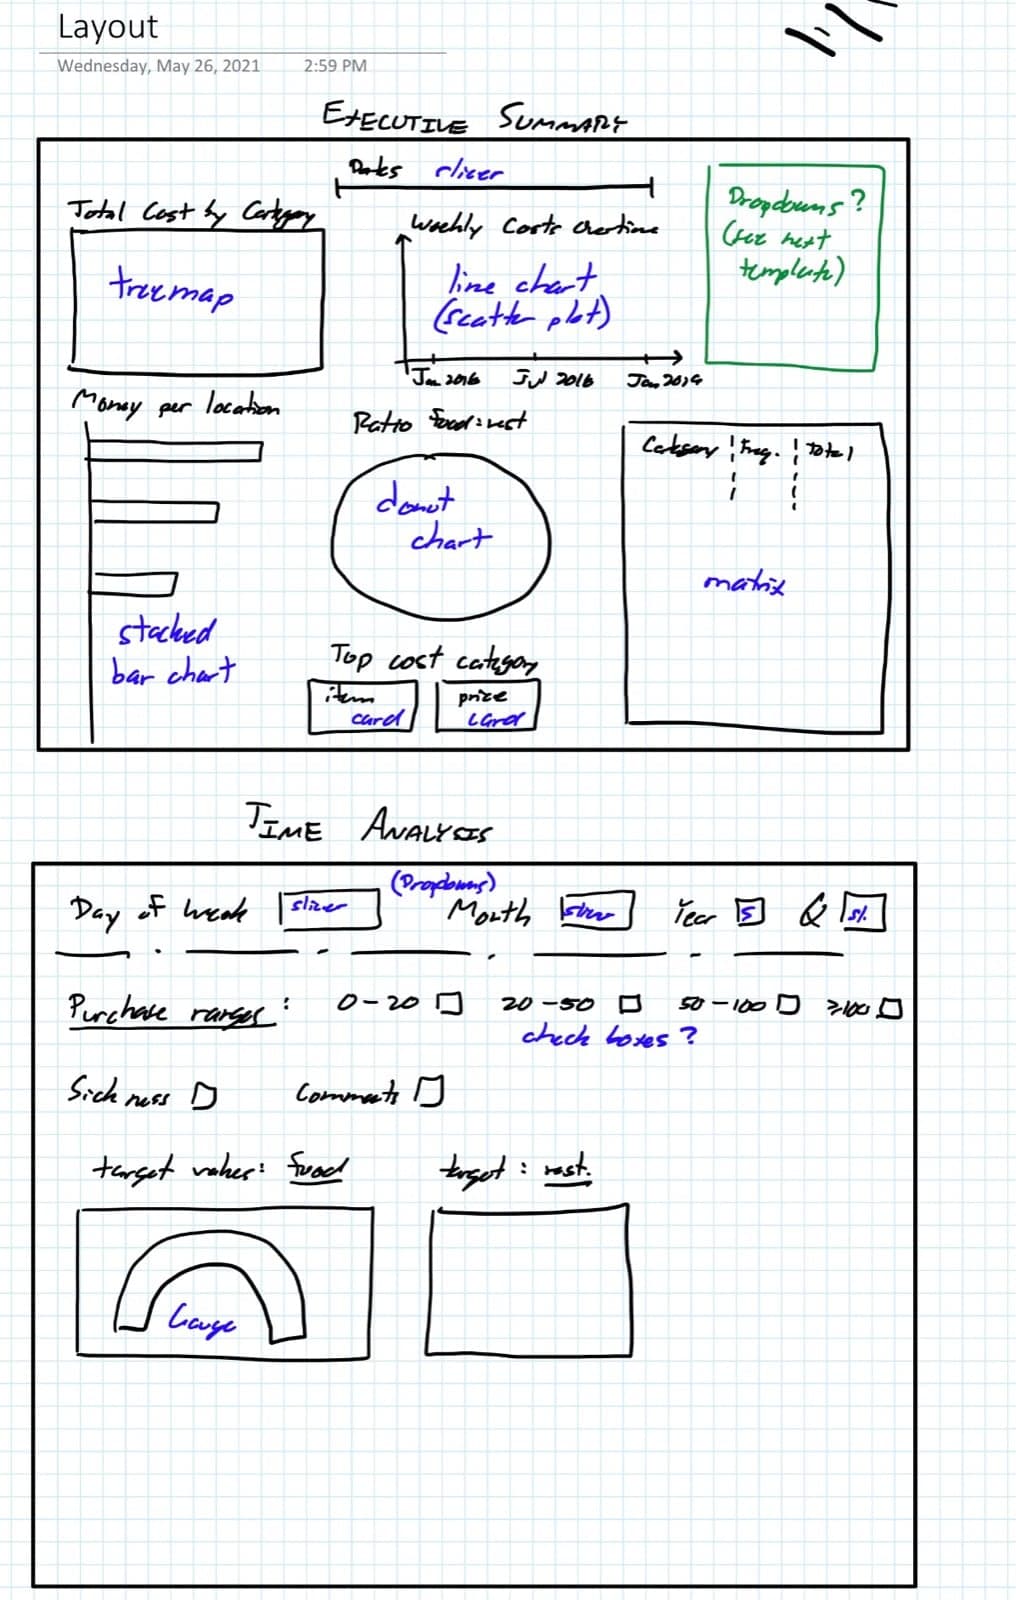 Layout
Wednesday, May 26, 2021 2:59 PM
EXECUTIVE SUMMARY
Dates slicer
Total Cost by Category
treemap
Weekly Costs Overtime
line chart
(scatter plot)
Jan 2016 Jul 2016 Jan 2019
Dropdowns?
(see next
template)
Money per location
stacked
bar chart
Ratio food:rest
donut
chart
Top cost category
item
card
price
card
Category Freq. Total
matrix
TIME ANALYSIS
(Dropdowns)
Day of week slicer Month slicer Year S Q sl.
Purchase ranges: 0-20 20-50 50-100 ≥100
check boxes?
Sickness Comments
target values: food target: rest.
Gauge